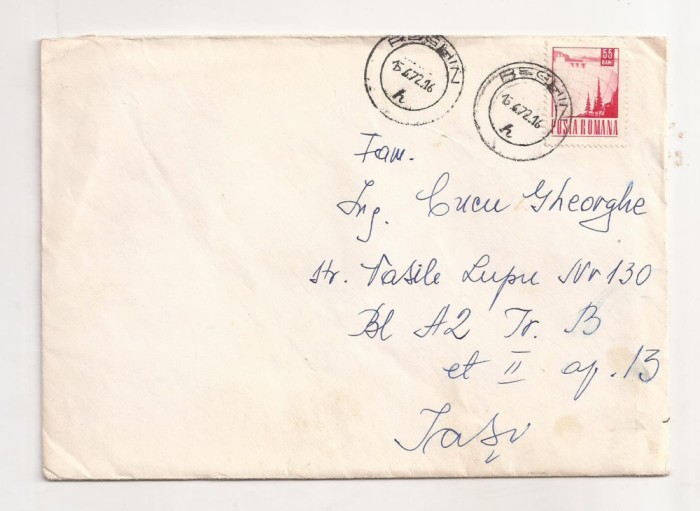 REGHIN
15.6.72.16
h
REGHIN
15.6.72.16
h
55
BANI
POSTA ROMANA
Fam.
Ing. Cucu Gheorghe
str. Vasile Lupu Nr 130
Bl A2 Tr. B
et II ap. 13
Iași